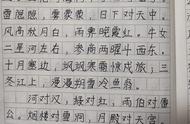 雷隐隐，雾蒙蒙，日下对天中。
风高秋月白，雨霁晚霞红。牛女
二星河左右，参商两曜斗西东。
十月塞边，飒飒寒霜惊戍旅；三
冬江上，漫漫朔雪冷鱼翁。
河对汉，绿对红，雨伯对雷
公。烟楼对雪洞，月殿对天宫。